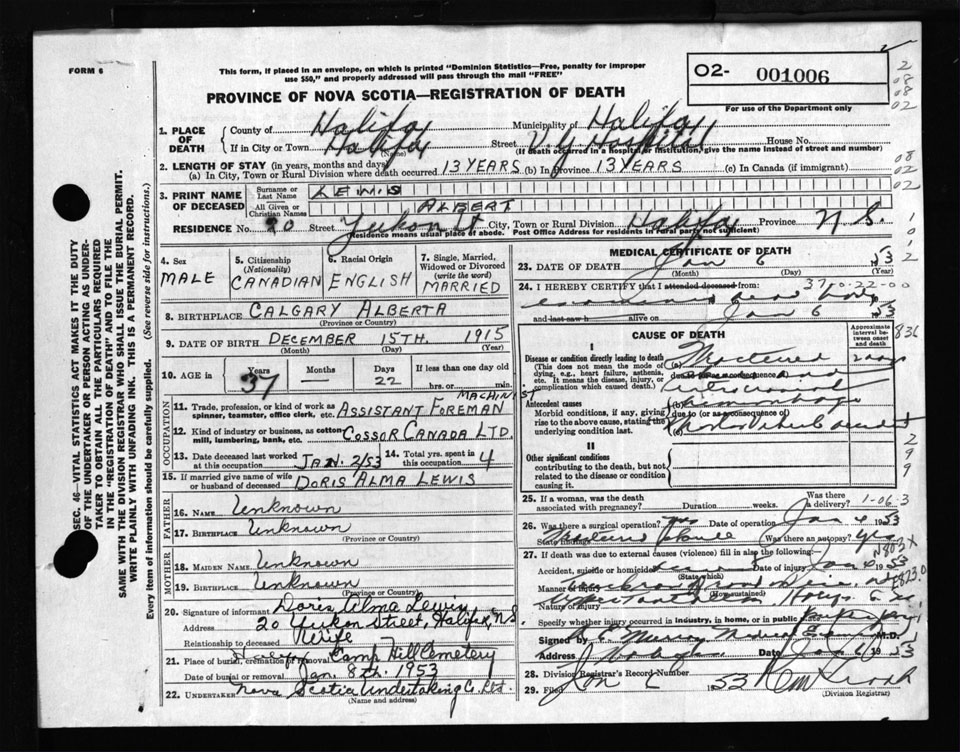 FORM 6
This form, if placed in an envelope, on which is printed "Dominion Statistics—Free, penalty for improper
use $50," and properly addressed will pass through the mail "FREE"
O2- 001006
For use of the Department only
PROVINCE OF NOVA SCOTIA—REGISTRATION OF DEATH
1. PLACE OF DEATH
County of Halifax Municipality of Halifax
If in City or Town Halifax Street V.G. Hospital House No.
(Name) (If death occurred in a hospital or institution, give the name instead of street and number)
2. LENGTH OF STAY (in years, months and days)
(a) In City, Town or Rural Division where death occurred 13 YEARS (b) In Province 13 YEARS (c) In Canada (if immigrant)
3. PRINT NAME OF DECEASED
Surname or Last Name LEWIS
All Given or Christian Names ALBERT
RESIDENCE No. 20 Street Yukon St City, Town or Rural Division Halifax Province N.S.
Residence means usual place of abode. Post Office Address for residents of rural parts not sufficient)
4. Sex MALE
5. Citizenship (Nationality) CANADIAN
6. Racial Origin ENGLISH
7. Single, Married, Widowed or Divorced (write the word) MARRIED
8. BIRTHPLACE CALGARY ALBERTA
(Province or Country)
9. DATE OF BIRTH DECEMBER 15TH. 1915
(Month) (Day) (Year)
10. AGE in Years 37 Months — Days 22 If less than one day hrs. or min.
OCCUPATION
11. Trade, profession, or kind of work as spinner, teamster, office clerk, etc. ASSISTANT FOREMAN MACHINIST
12. Kind of industry or business, as cotton mill, lumbering, bank, etc. COSSOR CANADA LTD.
13. Date deceased last worked at this occupation JAN. 2/53
14. Total yrs. spent in this occupation 4
15. If married give name of wife or husband of deceased DORIS ALMA LEWIS
FATHER
16. Name Unknown
17. BIRTHPLACE Unknown
(Province or Country)
MOTHER
18. MAIDEN NAME Unknown
19. BIRTHPLACE Unknown
(Province or Country)
20. Signature of informant Doris Alma Lewis
Address 20 Yukon Street, Halifax, N.S.
Relationship to deceased Wife
21. Place of burial, cremation or removal Camp Hill Cemetery
Date of burial or removal Jan. 8th. 1953
22. UNDERTAKER Nova Scotia Undertaking Co. Ltd.
(Name and address)
MEDICAL CERTIFICATE OF DEATH
23. DATE OF DEATH Jan 6 1953
(Month) (Day) (Year)
24. I HEREBY CERTIFY that I attended deceased from
37-0-22-00
and last saw h alive on Jan 6 1953
CAUSE OF DEATH
Approximate interval between onset and death
I
Disease or condition directly leading to death
(This does not mean the mode of dying, e.g., heart failure, asthenia, etc. It means the disease, injury, or complication which caused death.)
(a) Fractured 2 days
due to (or as a consequence of)
intracranial
Antecedent causes
Morbid conditions, if any, giving rise to the above cause, stating the underlying condition last.
(b) hemorrhage
due to (or as a consequence of)
(c) Motor Vehicle accident
II
Other significant conditions
contributing to the death, but not related to the disease or condition causing it.
25. If a woman, was the death associated with pregnancy? Duration weeks. Was there a delivery?
1-06-3
26. Was there a surgical operation? yes Date of operation Jan 4 1953
State findings Fractured skull Was there an autopsy? yes
N803X
27. If death was due to external causes (violence) fill in also the following:—
Accident, suicide or homicide Date of injury Jan 4 1953
(State which)
Manner of injury
(How sustained)
E823.0
Nature of injury
Specify whether injury occurred in industry, in home, or in public place
Signed by Murray Medical Examiner M.D.
Address Halifax Date Jan 6 1953
28. Division Registrar's Record Number
29. Filed Jan 1953
(Division Registrar)
SEC. 46—VITAL STATISTICS ACT MAKES IT THE DUTY
OF THE UNDERTAKER OR PERSON ACTING AS UNDER-
TAKER TO OBTAIN ALL THE PARTICULARS REQUIRED
IN THE "REGISTRATION OF DEATH" AND TO FILE THE
SAME WITH THE DIVISION REGISTRAR WHO SHALL ISSUE THE BURIAL PERMIT.
WRITE PLAINLY WITH UNFADING INK. THIS IS A PERMANENT RECORD.
Every item of information should be carefully supplied. (See reverse side for instructions.)